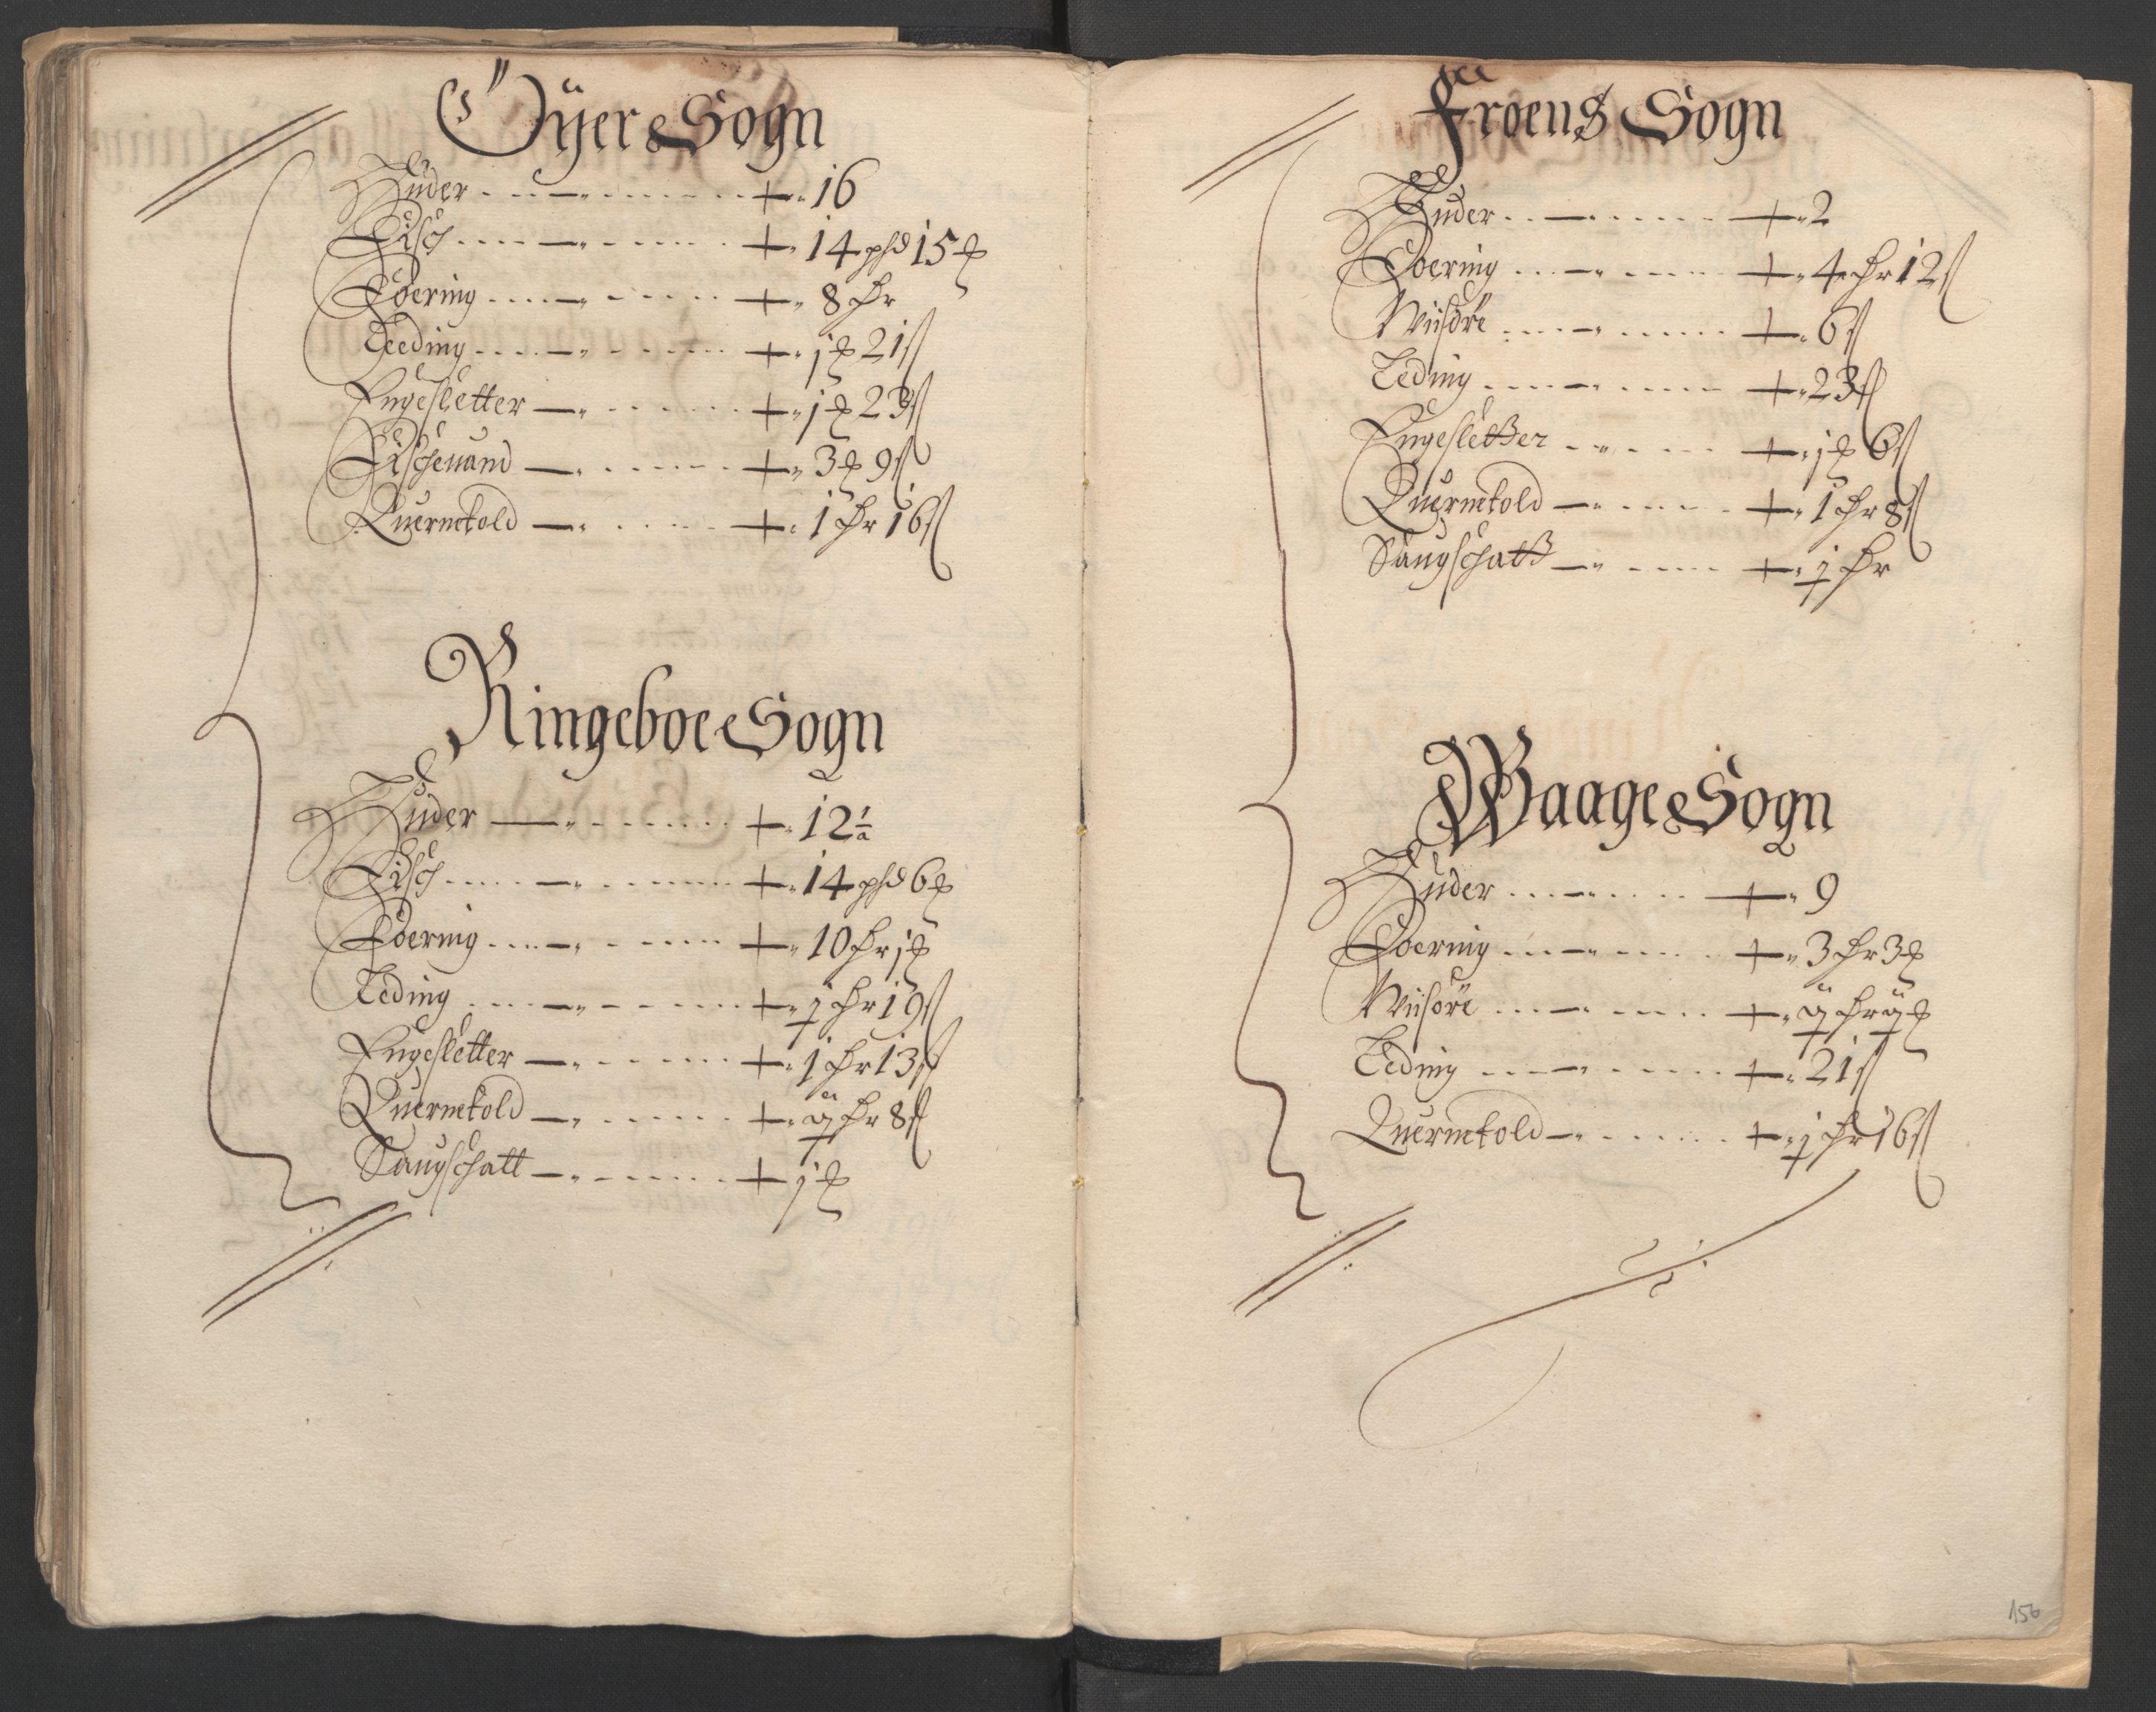 Öÿer Sogn
Huder — + 16
Fisch — + 14 phd 15 ℔
Foering — + 8 hr
Leeding — + j ℔ 21 ß
Engesletter — + j ℔ 23 ß
Fischeuand — + 3 ℔ 9 ß
Quernetold — + 1 hr 16 ß
Ringeboe Sogn
Huder — + 12 ½
Fisch — + 14 phd 6 ℔
Foering — + 10 hr j ℔
Leding — + j hr 19 ß
Engesletter — + 1 hr 13 ß
Quernetold — + ij hr 8 ß
Saugschatt — + j ℔
Froens Sogn
Huder — + 2
Foering — + 4 hr 12 ß
Wiisöre — + 6 ß
Leding — + 23 ß
Engesletter — + j ℔ 6 ß
Quernetold — + 1 hr 8 ß
Saugschatt — + j hr
Waage Sogn
Huder — + 9
Foering — + 3 hr 3 ℔
Wiisöre — + ij hr ij ℔
Leding — + 21 ß
Quernetold — + j hr 16 ß
156